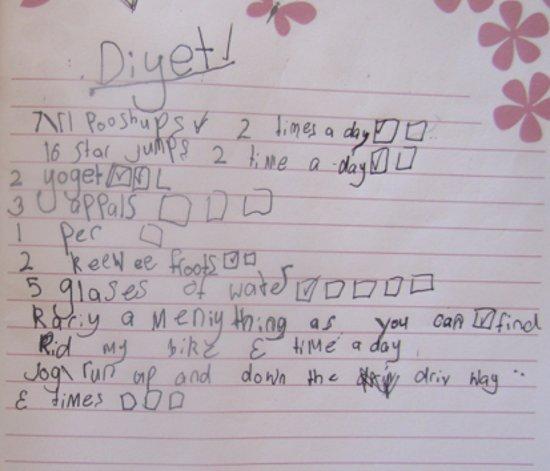 Diyet!
7\11 Pooshups ✓ 2 times a day ☑ ☐
16 star jumps 2 time a day ☑ ☐
2 yoget ☑ ☑
3 appals ☐ ☐ ☐
1 per ☐
2 keewee froots ☑ ☐
5 glases of water ☑ ☐ ☐ ☐ ☐
Rariy a meniy thing as you can ☑ find
Rid my bike 3 time a day
Jog\run up and down the driv way
3 times ☐ ☐ ☐